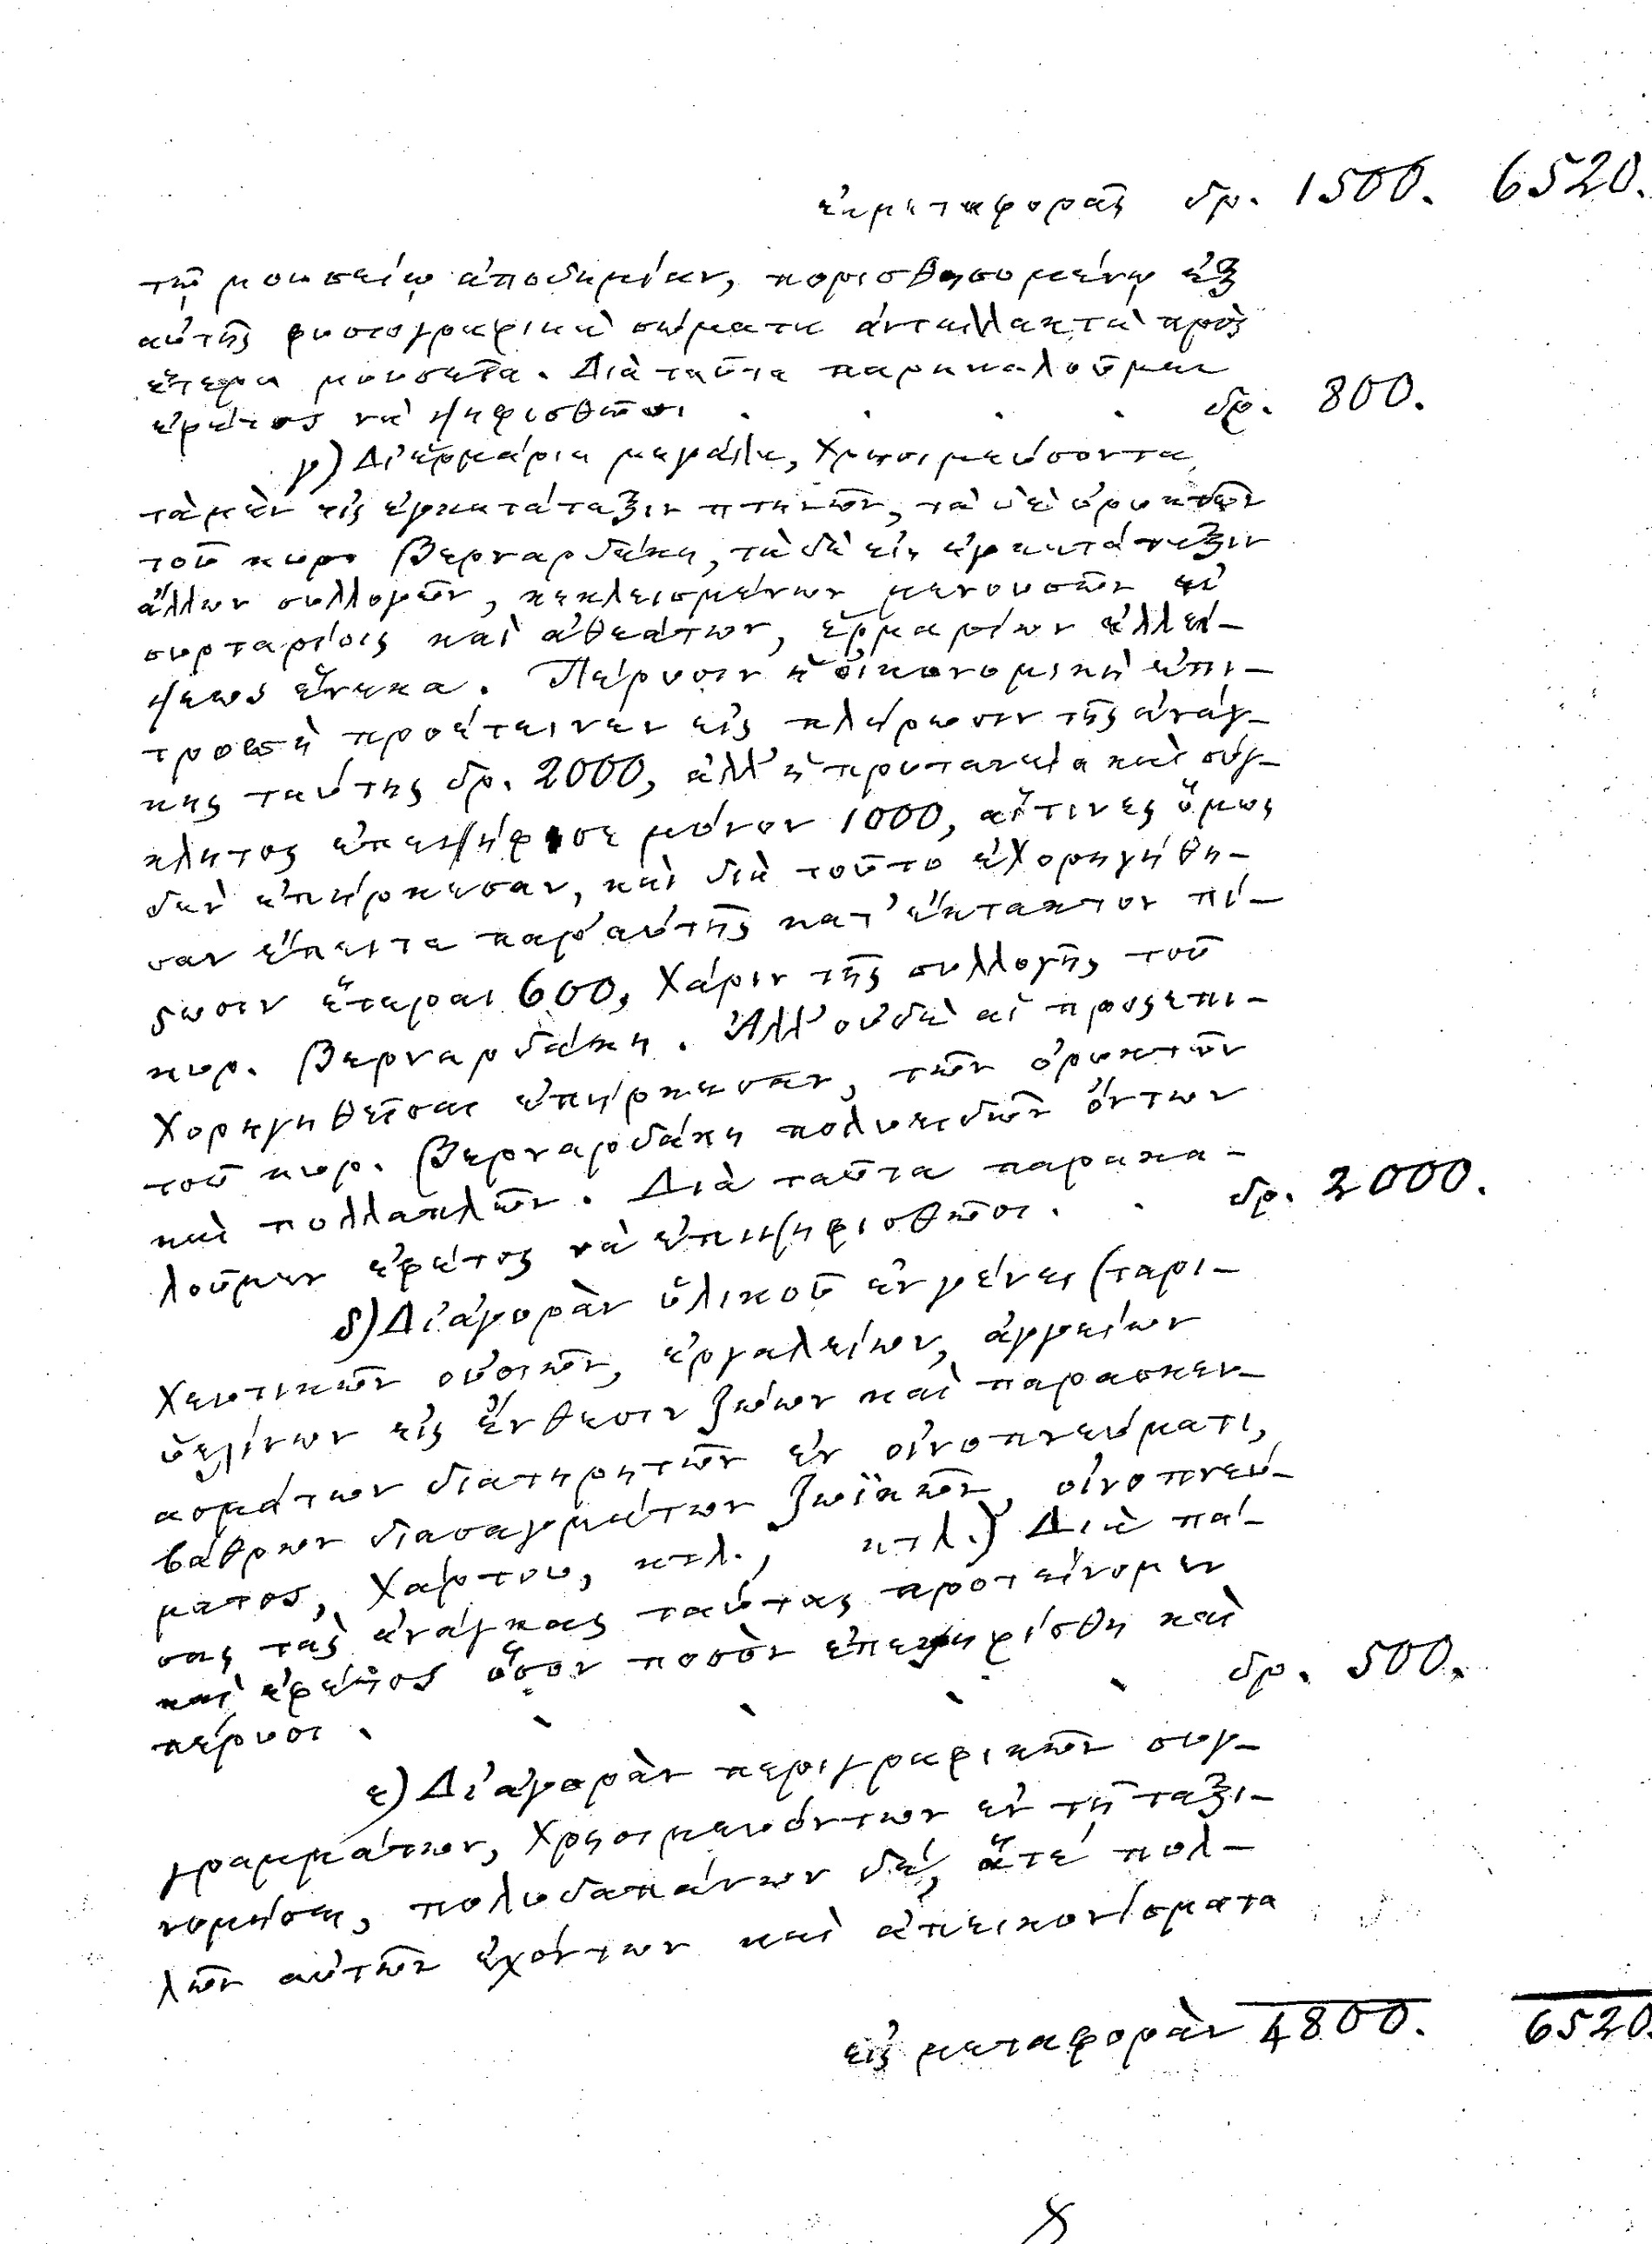 ἐκ μεταφορᾶς δρ. 1500. 6520.
τῷ μουσείῳ ἀποδημίαν, πορισθησομένῳ ἐξ
αὐτῆς φυσιογραφικὰ σώματα ἀνταλλακτὰ πρὸς
ἕτερα μουσεῖα. Διὰ ταῦτα παρακαλοῦμεν
ἐφέτος νὰ ψηφισθῶσι . . . . δρ. 800.
γ) Δι' ἑρμάρια μεγάλα, χρησιμεύσοντα
τὰ μὲν εἰς ἐγκατάταξιν πτηνῶν, τὰ δὲ ὀρυκτῶν
τοῦ κυρ. Βερναρδάκη, τὰ δὲ εἰς ἐγκατάταξιν
ἄλλων συλλογῶν, κεκλεισμένων μενουσῶν ἐν
συρταρίοις καὶ ἀθεάτων, ἑρμαρίων ἐλλεί-
ψεως ἕνεκα. Πέρυσιν ἡ οἰκονομικὴ ἐπι-
τροπὴ προέτεινεν εἰς πλήρωσιν τῆς ἀνάγ-
κης ταύτης δρ. 2000, ἀλλ' ἡ πρυτανεία καὶ σύγ-
κλητος ἐπεψήφισε μόνον 1000, αἵτινες ὅμως
δὲν ἐπήρκεσαν, καὶ διὰ τοῦτο ἐχορηγήθη-
σαν ἔπειτα παρ' αὐτῆς κατ' ἔκτακτον πί-
στωσιν ἕτεραι 600, χάριν τῆς συλλογῆς τοῦ
κυρ. Βερναρδάκη. Ἀλλ' οὐδὲ αἱ προςεπι-
χορηγηθεῖσαι ἐπήρκεσαν, τῶν ὀρυκτῶν
τοῦ κυρ. Βερναρδάκη πολυειδῶν ὄντων
καὶ πολλαπλῶν. Διὰ ταῦτα παρακα-
λοῦμεν ἐφέτος νὰ ἐπιψηφισθῶσι . . δρ. 2000.
δ) Δι' ἀγορὰν ὑλικοῦ ἐν γένει (ταρι-
χευτικῶν οὐσιῶν, ἐργαλείων, ἀγγείων
ὑελίνων εἰς ἔνθεσιν ζώων καὶ παρασκευ-
ασμάτων διατηρητῶν ἐν οἰνοπνεύματι,
βάθρων διασαγμάτων ζωϊκῶν, οἰνοπνεύ-
ματος, χάρτου, κτλ., κτλ.) Διὰ πά-
σας τὰς ἀνάγκας ταύτας προτείνομεν
καὶ ἐφέτος ὅσον ποσὸν ἐπεψηφίσθη καὶ
πέρυσι . . . . . δρ. 500.
ε) Δι' ἀγορὰν περιγραφικῶν συγ-
γραμμάτων, χρησιμευόντων ἐν τῇ ταξι-
νομήσει, πολυδαπάνων δέ, ἅτε πολ-
λῶν αὐτῶν ἐχόντων καὶ ἀπεικονίσματα
εἰς μεταφορὰν 4800. 6520.